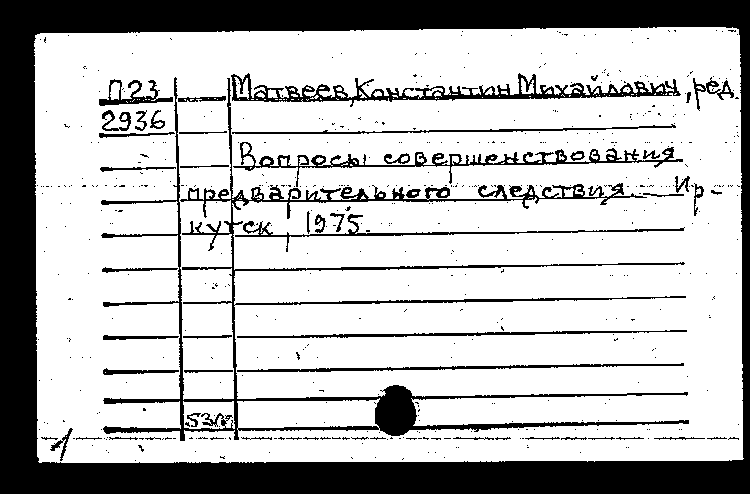 П23 Матвеев, Константин Михайлович, ред.
2936
Вопросы совершенствования
предварительного следствия. — Ир-
кутск, 1975.
53М
1